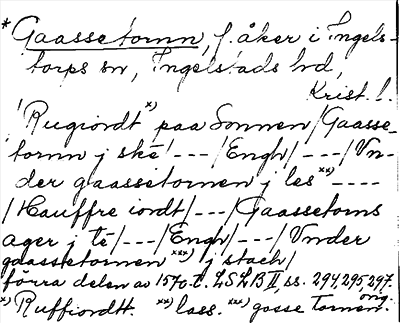 *Gaassetornn, f. åker i Ingels-
torps sn, Ingelstads hd,
Krist. l.
'Rugiordt *) paa Sonnen /Gaasse-
tornn j ske' --- /Engh/ --- /Vn-
der gaassetornen j les **) ----
/Hauffre iordt/ --- /Gaassetorns
ager j te/ --- /Engh/ --- /Vnder
gaassetornen ***) j stach/
förra delen av 1570-t. LSLB II, ss. 294, 295, 297.
*) Ruffiordtt. **) lass. ***) gosse Tornen. orig.